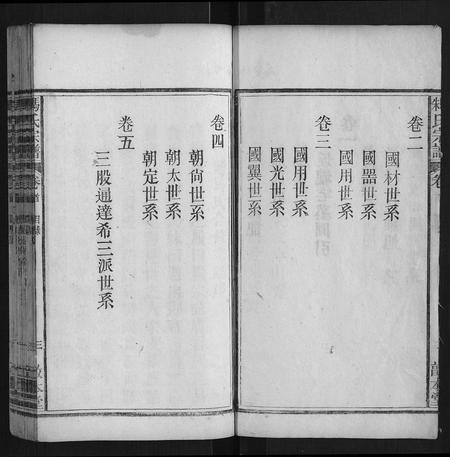 卷二
國材世系
國器世系
國用世系
卷三
國用世系
國光世系
國翼世系
卷四
朝尙世系
朝太世系
朝定世系
卷五
三股通達希三派世系
氏宗譜
卷首
三